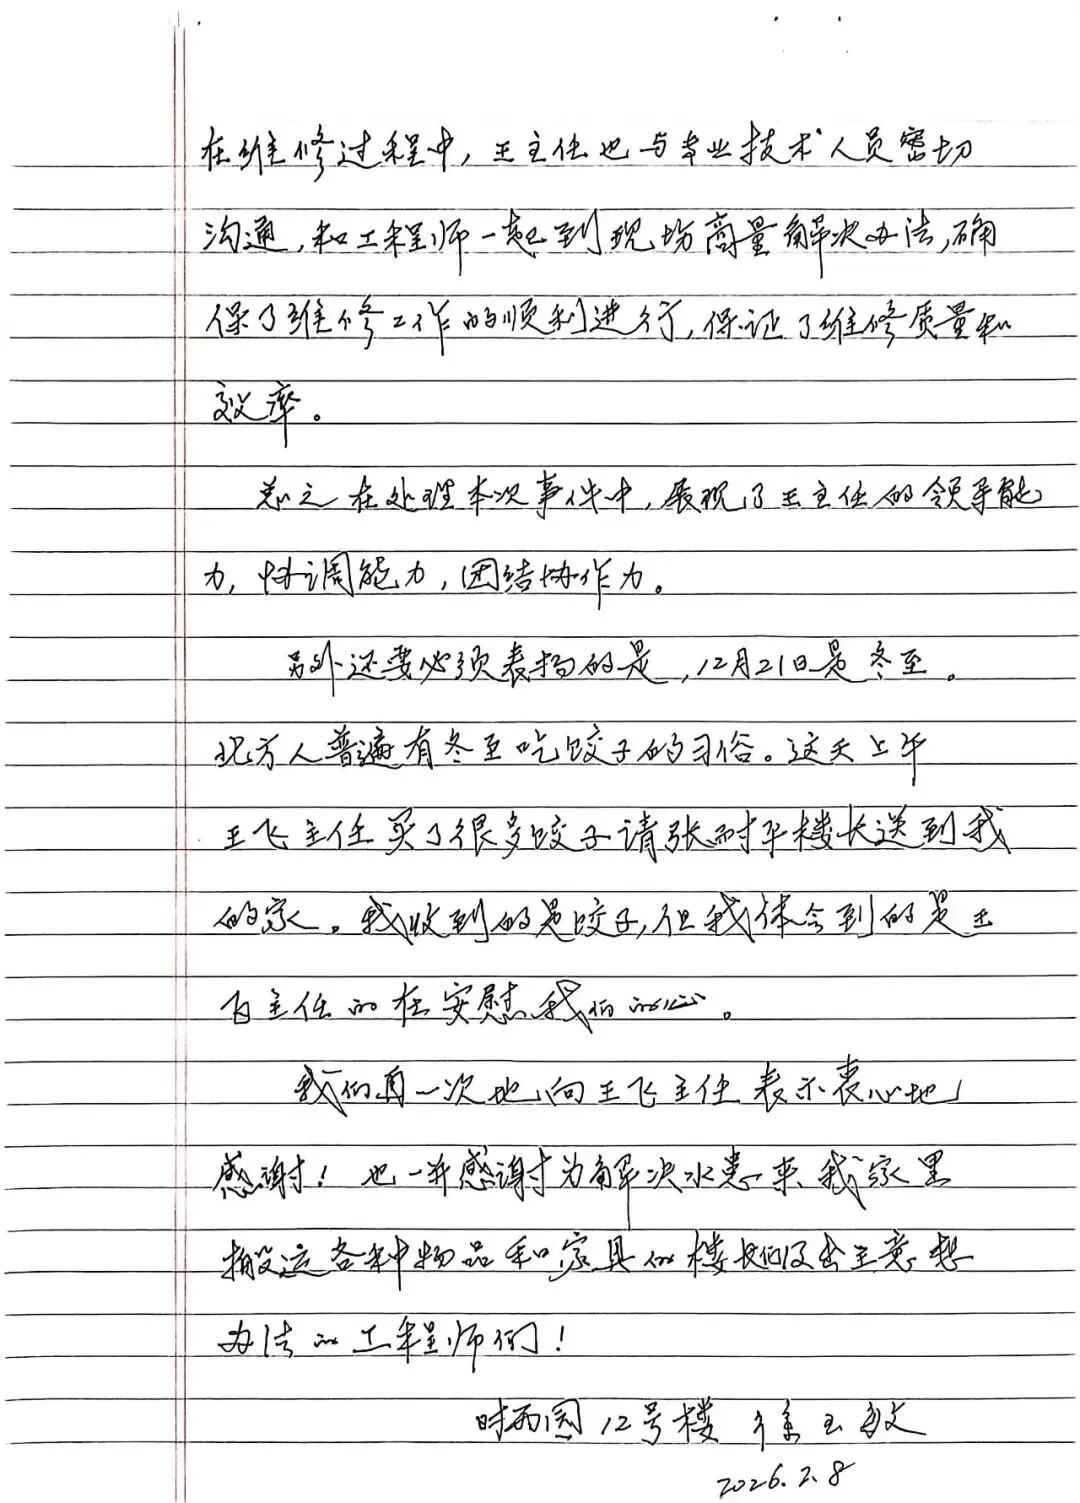 在维修过程中，王主任也与专业技术人员密切
沟通，和工程师一起到现场商量解决办法，确
保了维修工作的顺利进行，保证了维修质量和
效率。
总之在处理本次事件中，展现了王主任的领导能
力，协调能力，团结协作力。
另外还要必须表扬的是，12月21日是冬至。
北方人普遍有冬至吃饺子的习俗。这天上午
王飞主任买了很多饺子请张耐平楼长送到我
的家。我收到的是饺子，但我体会到的是王
主任的在安慰我们的心。
我们再一次地向王飞主任表示衷心地
感谢！也一并感谢为解决水患来我家里
搬运各种物品和家具的楼长们及出主意想
办法的工程师们！
时雨园12号楼 徐玉敏
2026.2.8